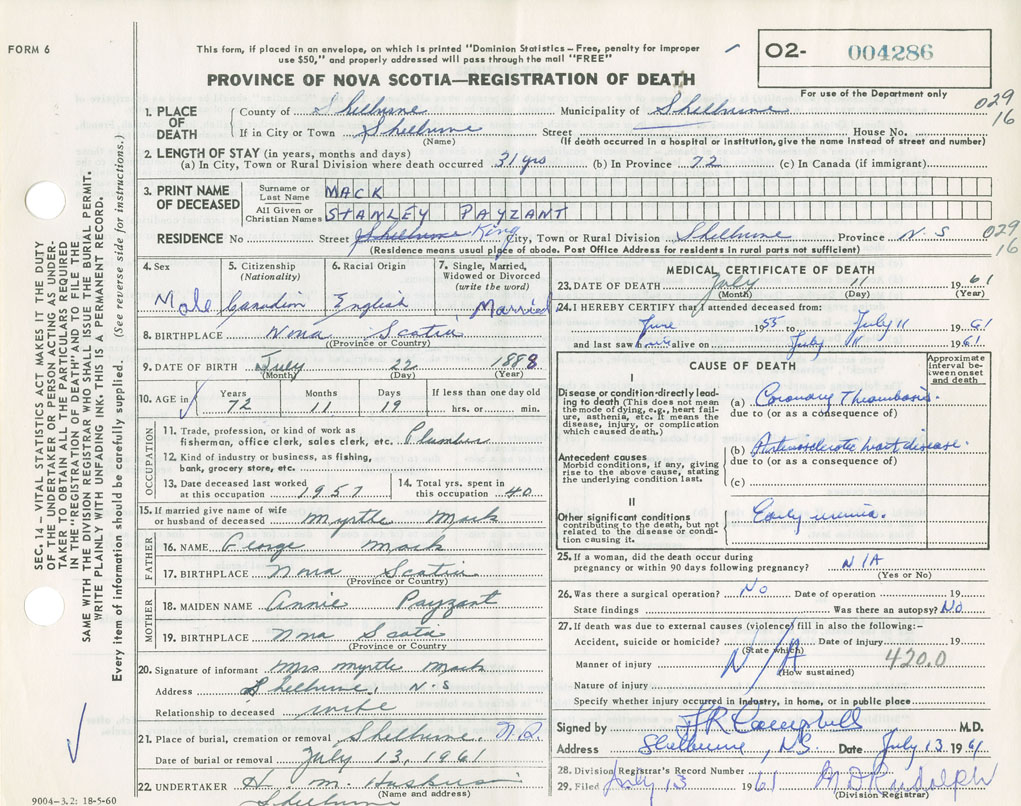 FORM 6
This form, if placed in an envelope, on which is printed "Dominion Statistics – Free, penalty for improper
use $50," and properly addressed will pass through the mail "FREE"
O2- 004286
For use of the Department only
PROVINCE OF NOVA SCOTIA—REGISTRATION OF DEATH
029
16
1. PLACE OF DEATH
County of Shelburne Municipality of Shelburne
If in City or Town Shelburne Street House No.
(Name) (If death occurred in a hospital or institution, give the name instead of street and number)
2. LENGTH OF STAY (in years, months and days)
(a) In City, Town or Rural Division where death occurred 31 yrs (b) In Province 72 (c) In Canada (if immigrant)
3. PRINT NAME OF DECEASED
Surname or Last Name MACK
All Given or Christian Names STANLEY PAYZANT
RESIDENCE No Street Shelburne King City, Town or Rural Division Shelburne Province N.S
(Residence means usual place of abode. Post Office Address for residents in rural parts not sufficient)
029
16
4. Sex
Male
5. Citizenship
(Nationality)
Canadin
6. Racial Origin
English
7. Single, Married,
Widowed or Divorced
(write the word)
Married
8. BIRTHPLACE Nova Scotia
(Province or Country)
9. DATE OF BIRTH July 22 1888
(Month) (Day) (Year)
10. AGE in Years Months Days If less than one day old
72 11 19 hrs. or min.
OCCUPATION
11. Trade, profession, or kind of work as
fisherman, office clerk, sales clerk, etc. Plumber
12. Kind of industry or business, as fishing,
bank, grocery store, etc.
13. Date deceased last worked
at this occupation 1957
14. Total yrs. spent in
this occupation 40
15. If married give name of wife
or husband of deceased Myrtle Mack
FATHER
16. NAME George Mack
17. BIRTHPLACE Nova Scotia
(Province or Country)
MOTHER
18. MAIDEN NAME Annie Payzant
19. BIRTHPLACE Nova Scotia
(Province or Country)
20. Signature of informant Mrs Myrtle Mack
Address Shelburne, N.S
Relationship to deceased wife
21. Place of burial, cremation or removal Shelburne
Date of burial or removal July 13, 1961
22. UNDERTAKER H. M. Huskins
(Name and address)
Shelburne
9004-3.2: 18-5-60
MEDICAL CERTIFICATE OF DEATH
23. DATE OF DEATH July 11 1961
(Month) (Day) (Year)
24. I HEREBY CERTIFY that I attended deceased from:
June 1955 to July 11 1961
and last saw him alive on July 11 1961
CAUSE OF DEATH
Approximate
interval be-
tween onset
and death
I
Disease or condition directly lead-
ing to death (This does not mean
the mode of dying, e.g., heart fail-
ure, asthenia, etc. It means the
disease, injury, or complication
which caused death.)
(a) Coronary Thrombosis.
due to (or as a consequence of)
Antecedent causes
Morbid conditions, if any, giving
rise to the above cause, stating
the underlying condition last.
(b) heart disease.
due to (or as a consequence of)
(c)
II
Other significant conditions
contributing to the death, but not
related to the disease or condi-
tion causing it.
Early uremia.
25. If a woman, did the death occur during
pregnancy or within 90 days following pregnancy? N/A
(Yes or No)
26. Was there a surgical operation? No Date of operation 19
State findings Was there an autopsy? No
27. If death was due to external causes (violence) fill in also the following:–
Accident, suicide or homicide? Date of injury 19
(State which)
Manner of injury N/A 420.0
(How sustained)
Nature of injury
Specify whether injury occurred in industry, in home, or in public place
Signed by F R Campbell M.D.
Address Shelburne, NS. Date July 13 1961
28. Division Registrar's Record Number
29. Filed July 13 1961 M D Rudolph
(Division Registrar)
SEC. 14 – VITAL STATISTICS ACT MAKES IT THE DUTY
OF THE UNDERTAKER OR PERSON ACTING AS UNDER-
TAKER TO OBTAIN ALL THE PARTICULARS REQUIRED
IN THE "REGISTRATION OF DEATH" AND TO FILE THE
SAME WITH THE DIVISION REGISTRAR WHO SHALL ISSUE THE BURIAL PERMIT.
WRITE PLAINLY WITH UNFADING INK. THIS IS A PERMANENT RECORD.
Every item of information should be carefully supplied. (See reverse side for instructions.)